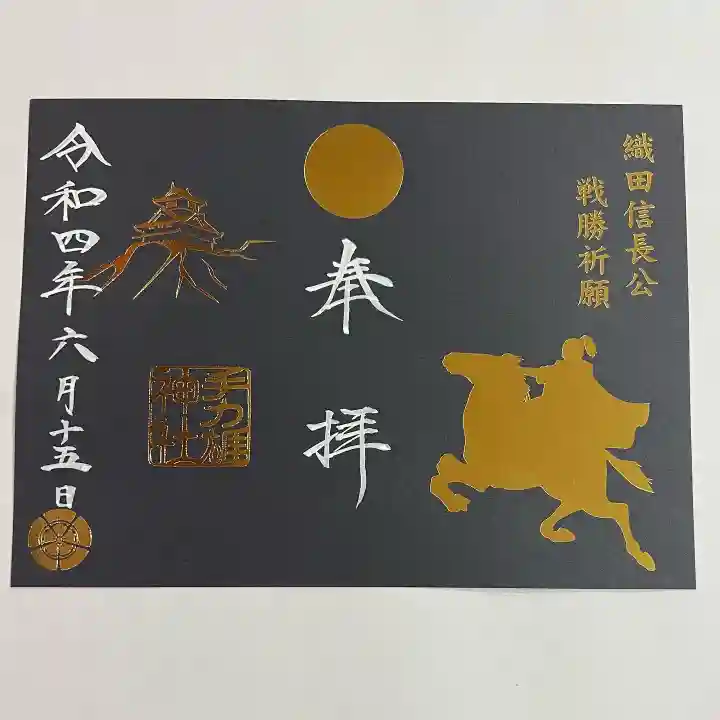 織田信長公
戦勝祈願
奉拝
手力雄
神社
令和四年六月十五日